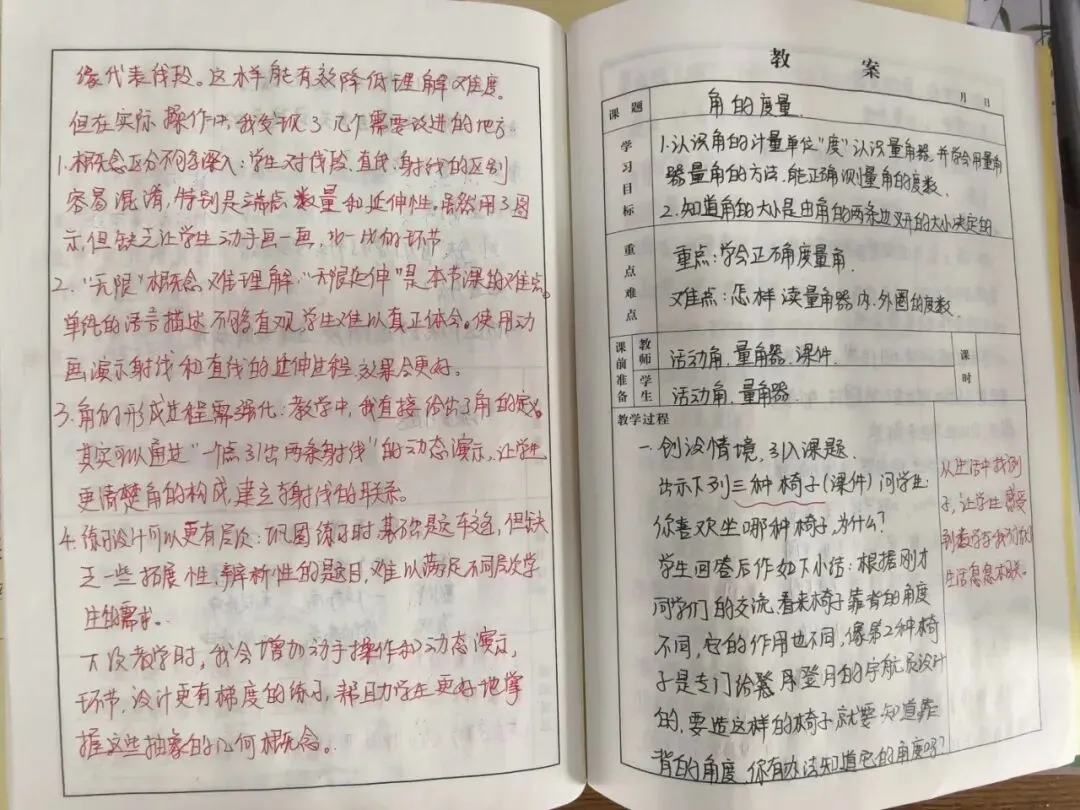 缘代表线段。这样能有效降低理解难度。
但在实际操作中,我发现了几个需要改进的地方
1.概念区分不够深入:学生对线段、直线、射线的区别
容易混淆,特别是端点数量和延伸性,虽然用了图
示,但缺乏让学生动手画一画,比一比的环节。
2.“无限”概念难理解:“无限延伸”是本节课的难点。
单纯的语言描述不够直观,学生难以真正体会。使用动
画演示射线和直线的延伸过程,效果会更好。
3.角的形成过程需强化:教学中,我直接给出了角的定义。
其实可以通过“一个点引出两条射线”的动态演示,让学生
更清楚角的构成,建立与射线的联系。
4.练习设计可以更有层次:巩固练习时,基础题过多,但缺
乏一些拓展性、辨析性的题目,难以满足不同层次学
生的需求。
下次教学时,我会增加动手操作和动态演示,
环节,设计更有梯度的练习,帮助学生更好地掌
握这些抽象的几何概念。
教 案
月 日
课题 角的度量
学习目标
1.认识角的计量单位“度”认识量角器,并学会用量角
器量角的方法,能正确测量角的度数、
2.知道角的大小是由角的两条边叉开的大小决定的
重点难点
重点:学会正确度量角
难点:怎样读量角器内、外圈的度数
课前准备 教师 活动角、量角器、课件. 课时
学生 活动角、量角器
教学过程
一.创设情境,引入课题.
出示下列三种椅子(课件)问学生:
你喜欢坐哪种椅子,为什么?
学生回答后作如下小结:根据刚才
同学们的交流,看来椅子靠背的角度
不同,它的作用也不同,像第2种椅
子是专门给登月的宇航员设计
的,要造这样的椅子就要知道靠
背的角度,你有办法知道它的角度吗?
从生活中找例
子,让学生感受
到数学与我们的
生活息息相关。